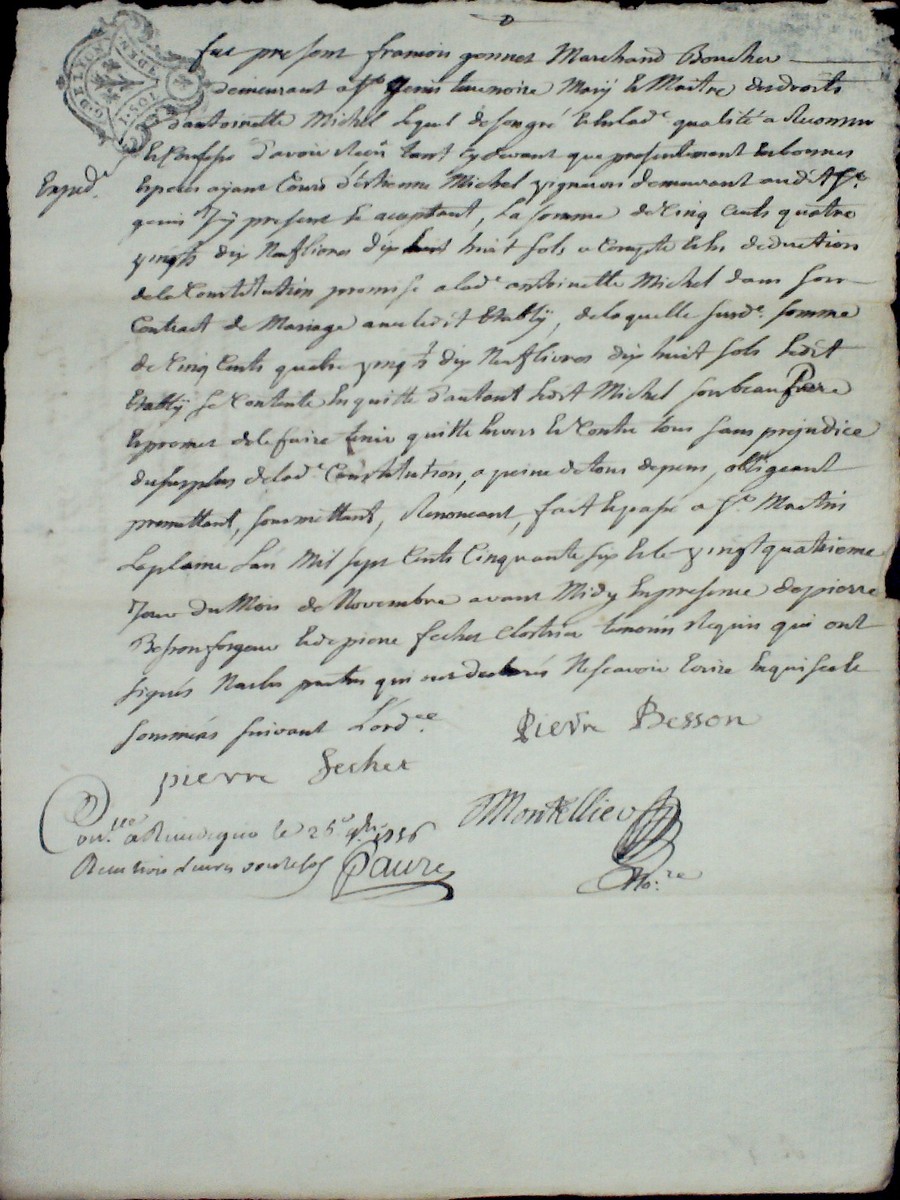 G. DE LYON
fut present françois gonnet Marchand Boucher
demeurant a St genis terrenoire Mary et Maitre des droits
d'antoinette Michel Lequel de son gré et en lad.e qualité a Reconnu
et Confessé d'avoir Reçû tant cy devant que presentement en bonnes
Exped.e
Especes ayant Cours d'Estienne Michel vigneron demeurant audit St
genis Icy present et aceptant, La somme de Cinq Cents quatre
vingts dix Neuf livres dix huit sols a Compte et en deduction
de la Constitution promise a lad.e antoinette Michel dans son
Contract de Mariage avec ledit Etably, de laquelle susd.e somme
de Cinq Cents quatre vingts dix Neuf livres dix huit sols Ledit
Etably se Contente En quitte d'autant Ledit Michel son beau Frere
et promet de le faire tenir quitte Envers Et Contre tous sans prejudice
du surplus de lad.e Constitution, a peine de tous depens, obligeant
promettant, soumettant, Renonceant, fait Et passé a St Martin
La plaine L'an Mil sept Cents Cinquante six Et le vingt quatrieme
Jour du Mois de Novembre avant Midy En presence de pierre
Besson forgeur Et de pierre fechet Cloutier temoins Requis qui ont
signés Non les parties qui ont declarés Ne scavoir Ecrire Enquis et
sommés suivant L'ord.ce
Pierre Besson
pierre fechet
Montellier
No.re
Con.lle a Rivedegier le 25e 9bre 1756
Reçu trois livres douze sols
Faure